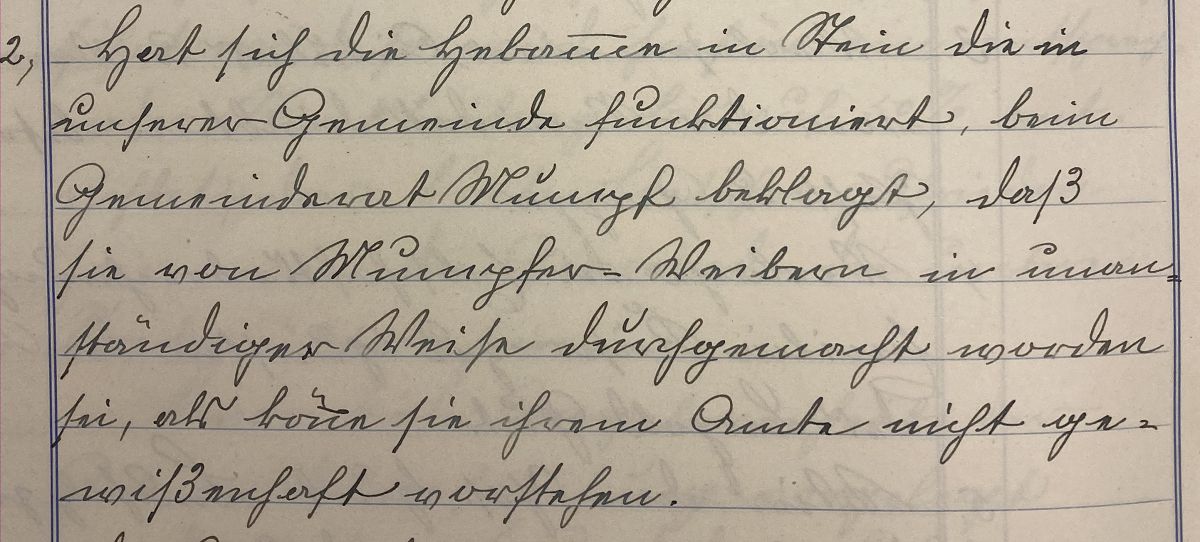 2, Hat sich die Hebam̅e in Stein die in
unserer Gemeinde funktioniert, beim
Gemeinderat Mumpf beklagt, daß
sie von Mumpfer-Weibern in unan=
ständiger Weise durchgemacht worden
sei, als kön̅e sie ihrem Amte nicht ge=
wißenhaft vorstehen.